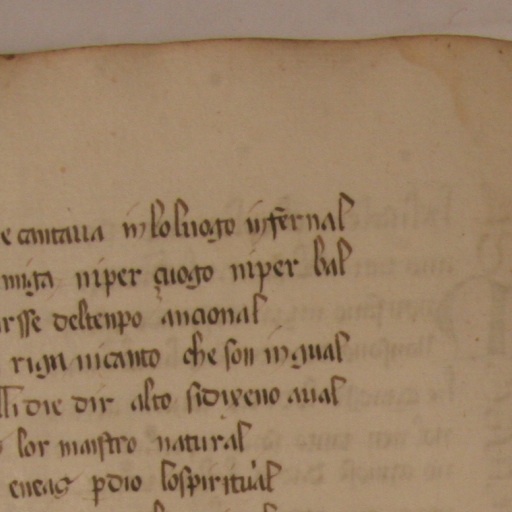 e cantaua in lo luogo infernal
miga ni per çuogo ni per bal
rsse del tenpo ancional
riga ni canto che son ingual
lli die dir alto si di ço aual
lor maistro natural
eneas p dio lo spiritual